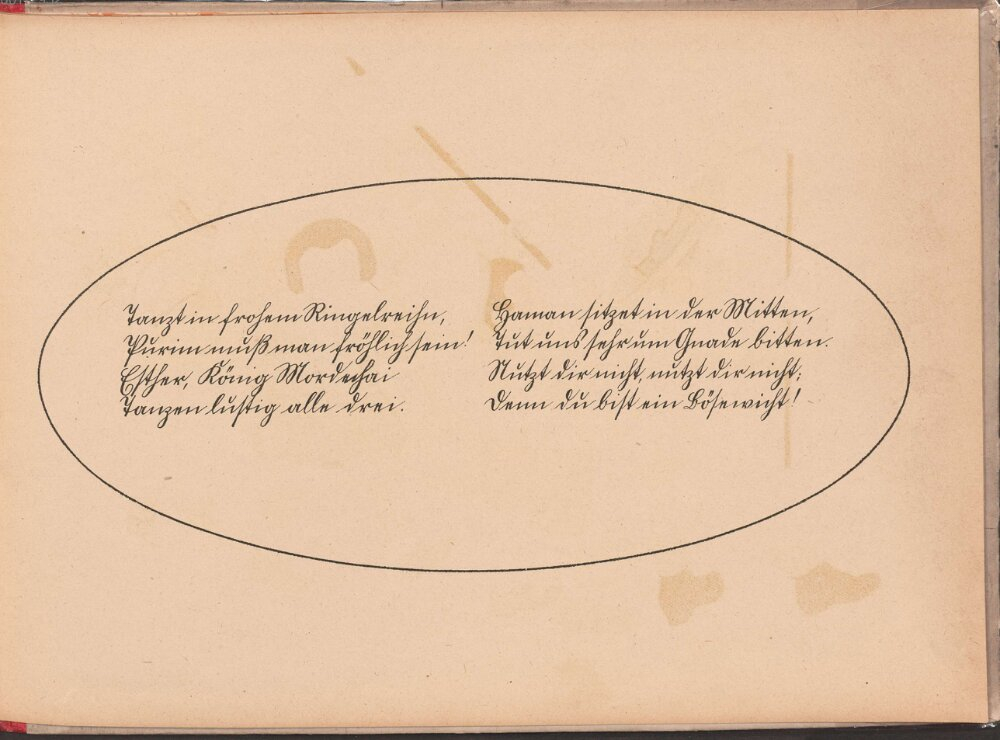 Tanzt in frohem Ringelreihn,
Purim muß man fröhlich sein!
Esther, König Mordechai
Tanzen lustig alle drei.
Haman sitzet in der Mitten,
Tut uns sehr um Gnade bitten.
Nutzt dir nicht, nutzt dir nicht;
Denn du bist ein Bösewicht!